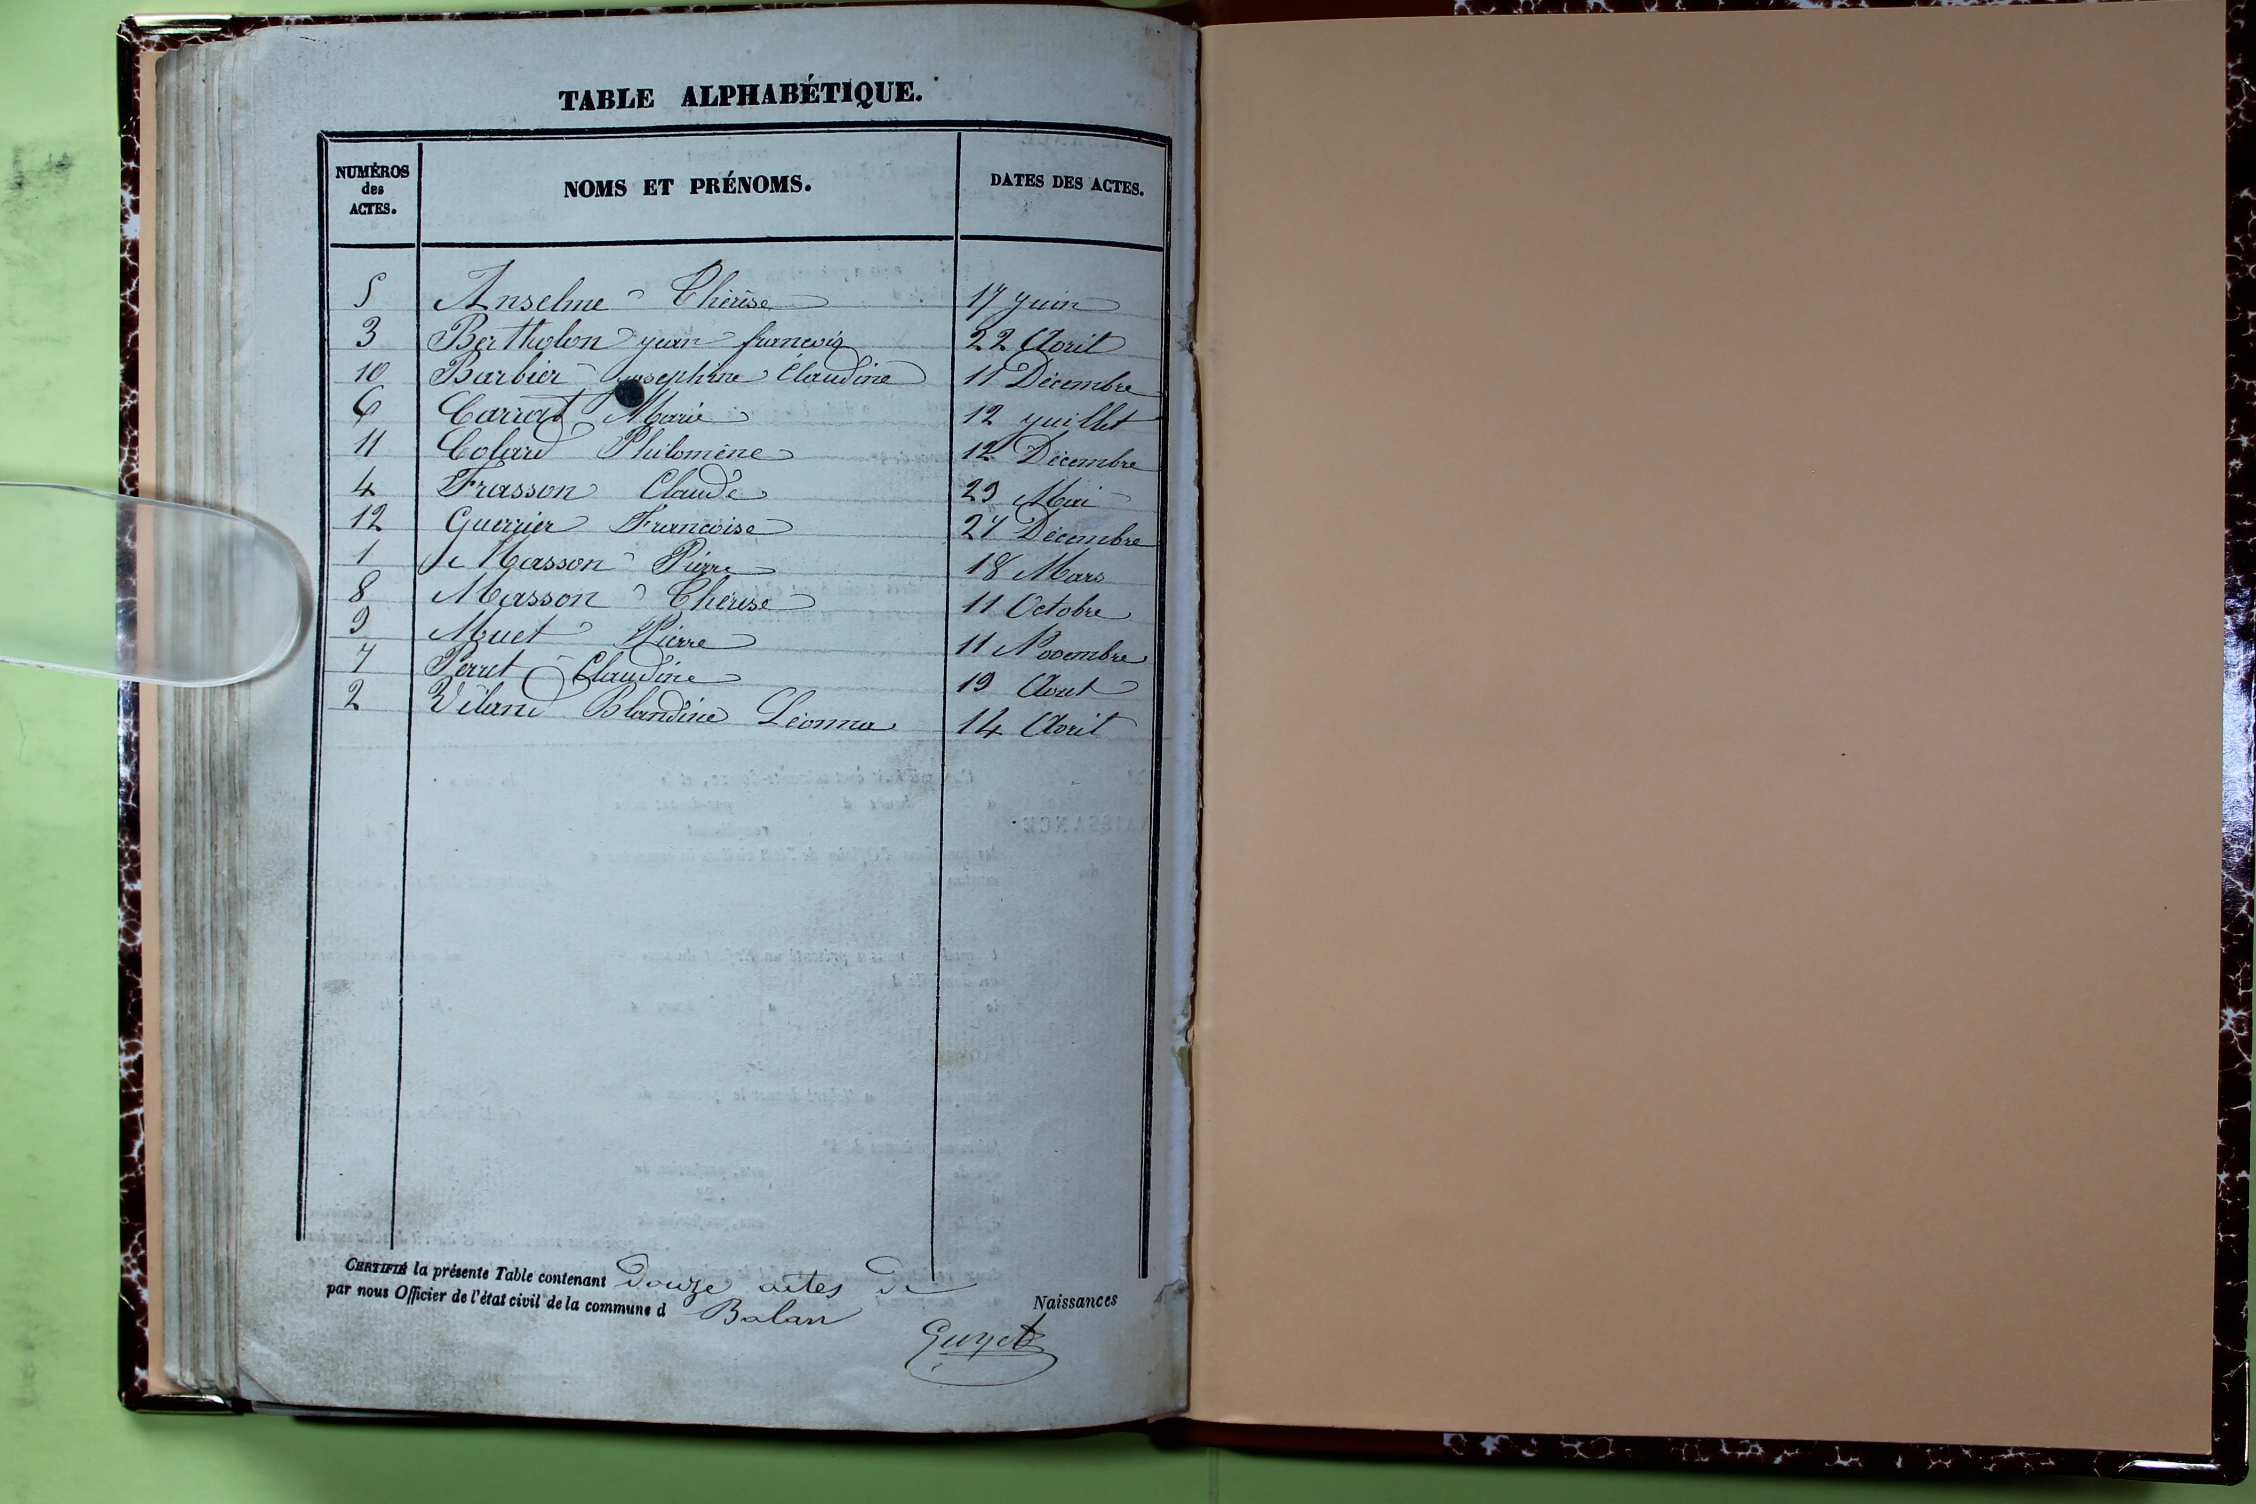 TABLE ALPHABÉTIQUE.
NUMÉROS des ACTES. NOMS ET PRÉNOMS. DATES DES ACTES.
5 Anselme Thérèse 17 Juin
3 Bertholon Jean françois 22 Avril
10 Barbier Josephine Claudine 11 Décembre
6 Carrat Marie 12 Juillet
11 Colard Philomène 12 Décembre
4 Frasson Claude 29 Mai
12 Guerrier Francoise 27 Décembre
1 Masson Pierre 18 Mars
8 Masson Thérèse 11 Octobre
9 Muet Pierre 11 Novembre
7 Perret Claudine 19 Aout
2 Viland Blandine Léonna 14 Avril
CERTIFIÉ la présente Table contenant douze actes de Naissances
par nous Officier de l'état civil de la commune d Balan
Guyot